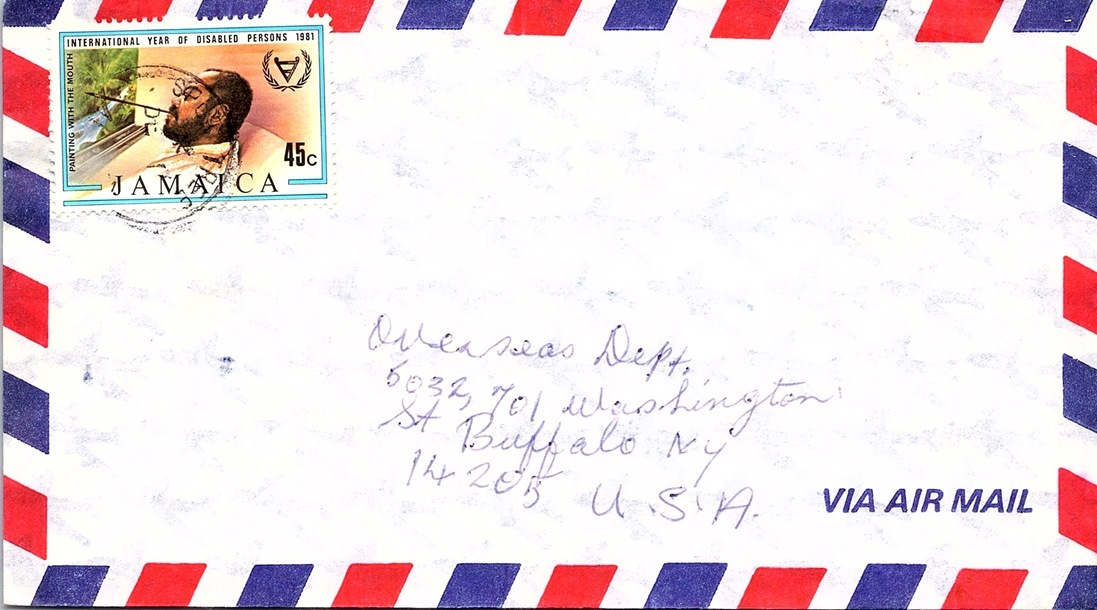 INTERNATIONAL YEAR OF DISABLED PERSONS 1981
PAINTING WITH THE MOUTH
45c
JAMAICA
Overseas Dept.
5032, 701 Washington
St Buffalo NY
14205 U.S.A.
VIA AIR MAIL